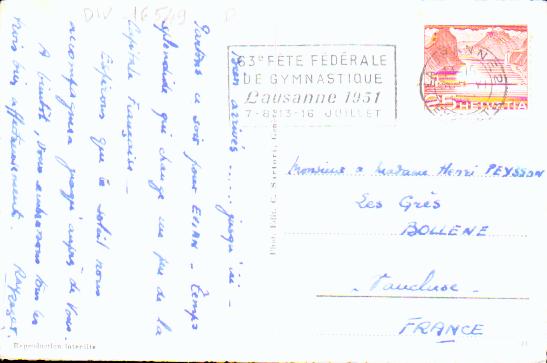 DIV 16549 D
63e FÊTE FÉDÉRALE
DE GYMNASTIQUE
Lausanne 1951
7-8 & 13-16 JUILLET
LAUSANNE 2
5 HELVETIA
Bien arrivés .... jusqu'ici -
Partons ce soir pour EVIAN - Temps
splendide qui change un peu de la
Capitale Française -
Espérons que le soleil nous
accompagnera jusqu'auprès de vous.
A bientôt, vous embrassons tous les
trois bien affectueusement.
Phot. Edit. C. Sartori,
Monsieur & Madame Henri PEYSSON
Les Grès
BOLLENE
- Vaucluse -
FRANCE
Reproduction interdite